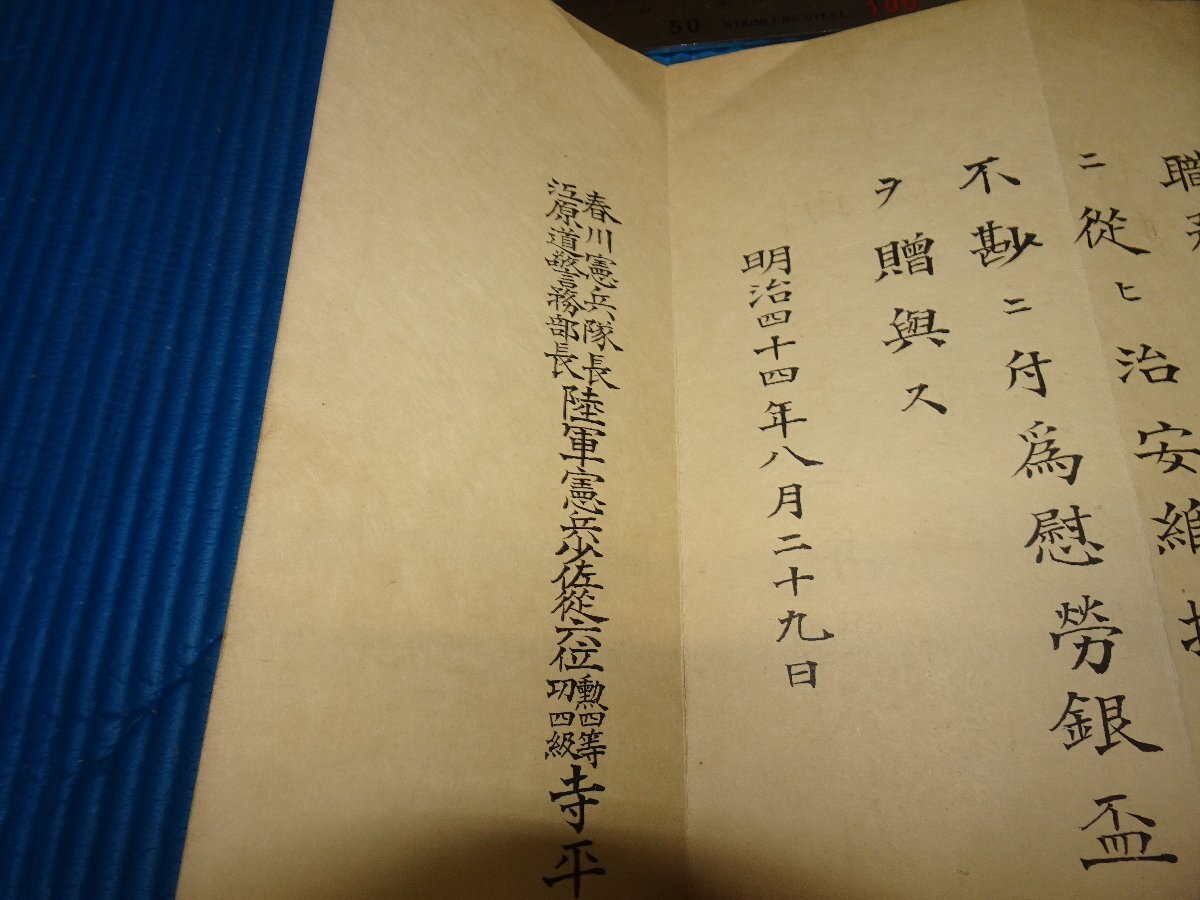 職
ニ從ヒ治安維
不尠ニ付爲慰勞銀盃
ヲ贈與ス
明治四十四年八月二十九日
春川憲兵隊長
江原道警務部長
陸軍憲兵少佐從六位
勲四等
功四級
寺平
50 STAINLESS STEEL 100